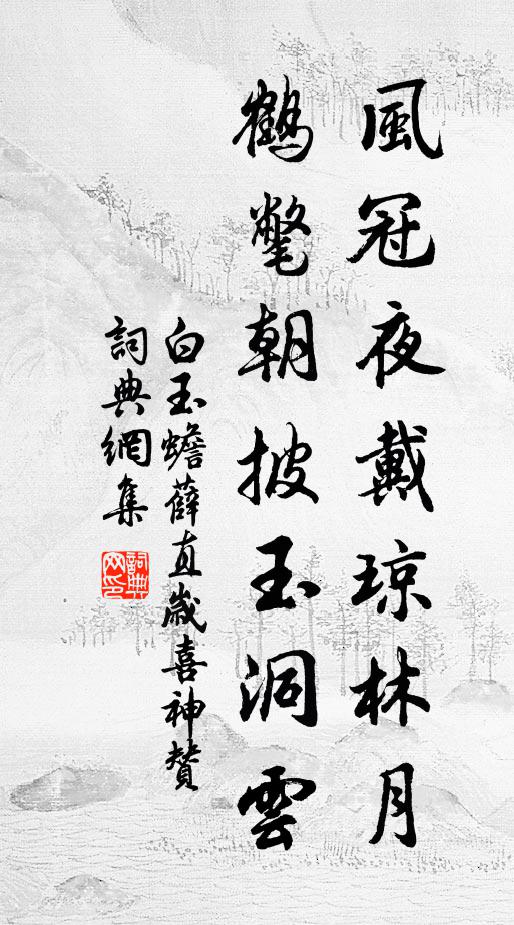 風冠夜戴琼林月
鶴氅朝披玉洞雲
白玉蟾薛直歲喜神贊
詞典網集
詞典網印